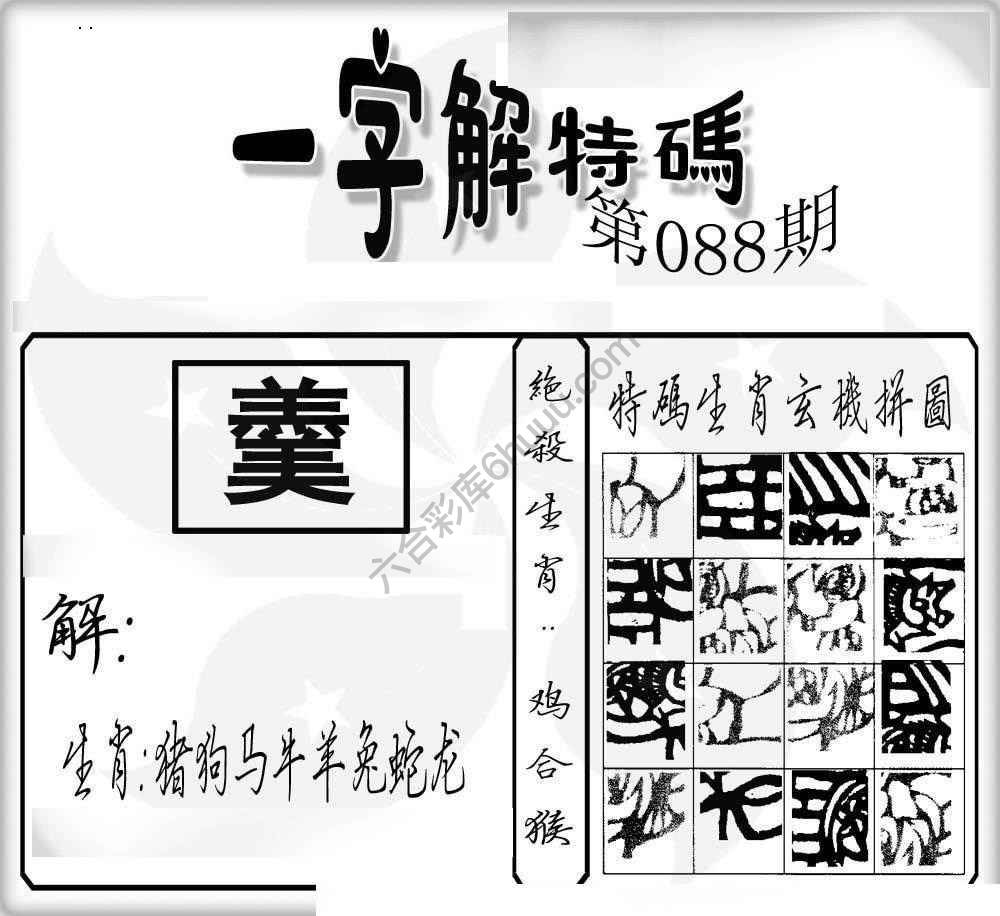 一字解特碼
第088期
羹
解:
生肖:猪狗马牛羊兔蛇龙
絶殺生肖:鸡合猴
特碼生肖玄機拼圖
六合彩库6huuu.com